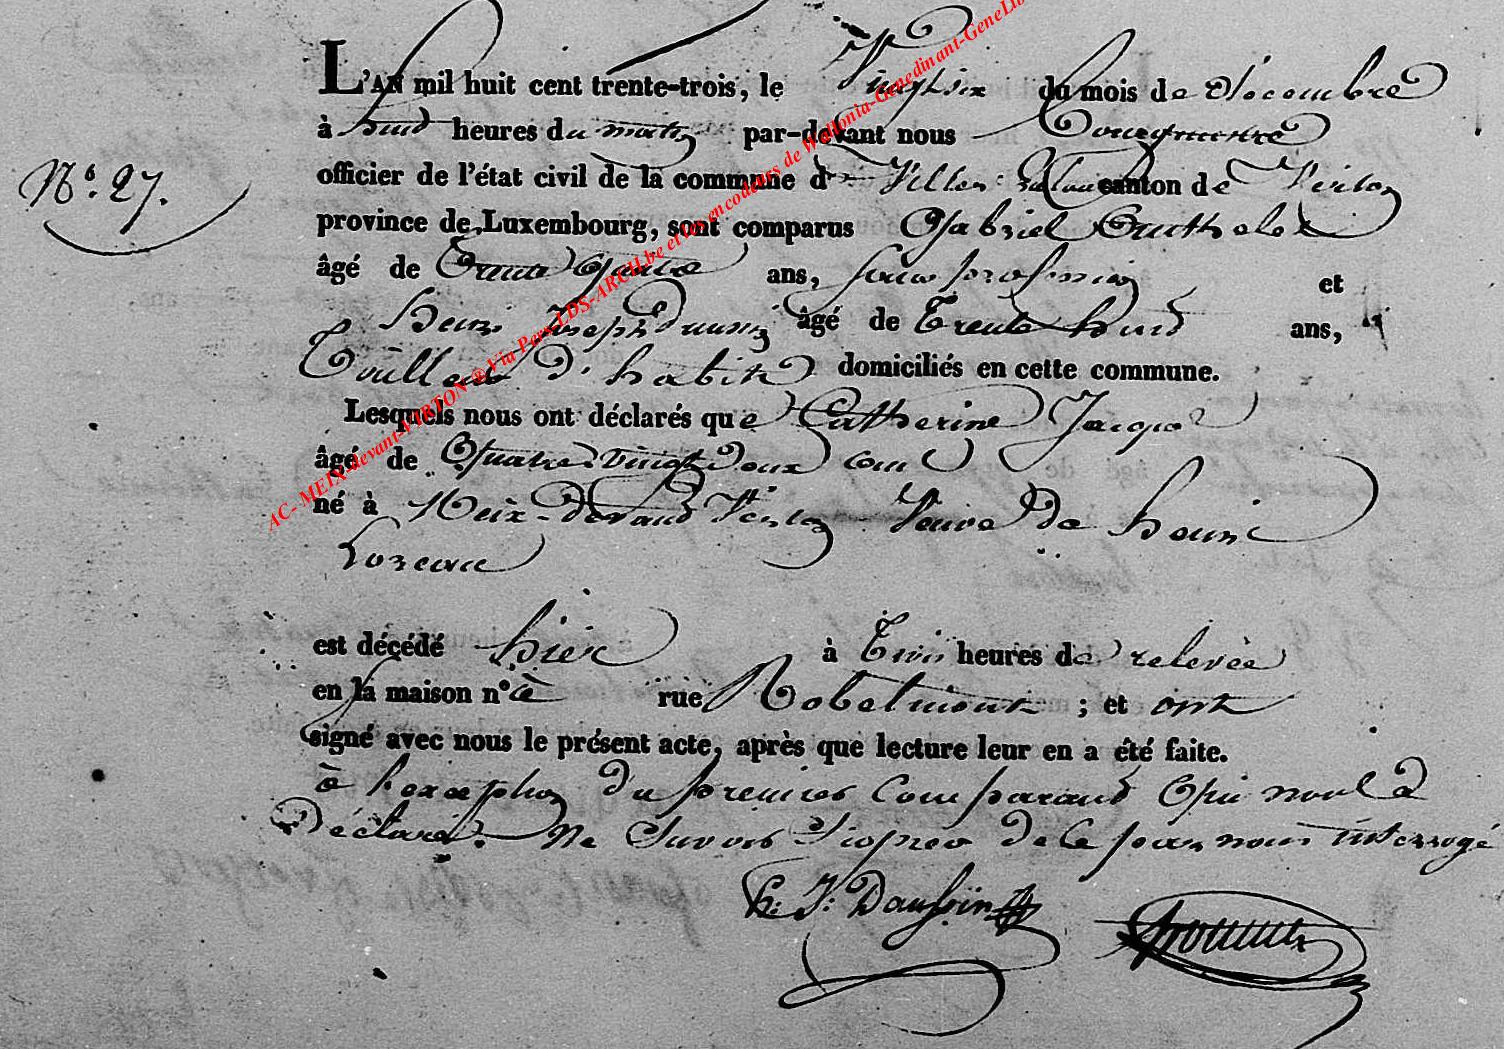 L'AN mil huit cent trente-trois, le Vingt six du mois de Décembre
à huit heures du matin par-devant nous Bourgmestre
N°. 27.
officier de l'état civil de la commune de canton de Virton
province de Luxembourg, sont comparus Gabriel
âgé de trente quatre ans, sans profession et
henri Joseph Daussin âgé de Trente huit ans,
Tailleur d'habits domiciliés en cette commune.
Lesquels nous ont déclarés que Catherine Jacquot
âgé de Quatre vingt Deux ans
né à Meix-devant Virton Veuve de henri
Lozeau
est décédé hier à Trois heures de relevée
en la maison n° à rue Robelmont ; et ont
signé avec nous le présent acte, après que lecture leur en a été faite.
à l'exception du premier Comparant qui nous a
Déclaré. Ne Savoir Signer de Ce par nous interrogé
h: J: Daussin
AC- MEIX-devant-VIRTON ® Via Pers-LDS-ARCH.be et les encodeurs de Wallonia-Genedinant-GeneLib